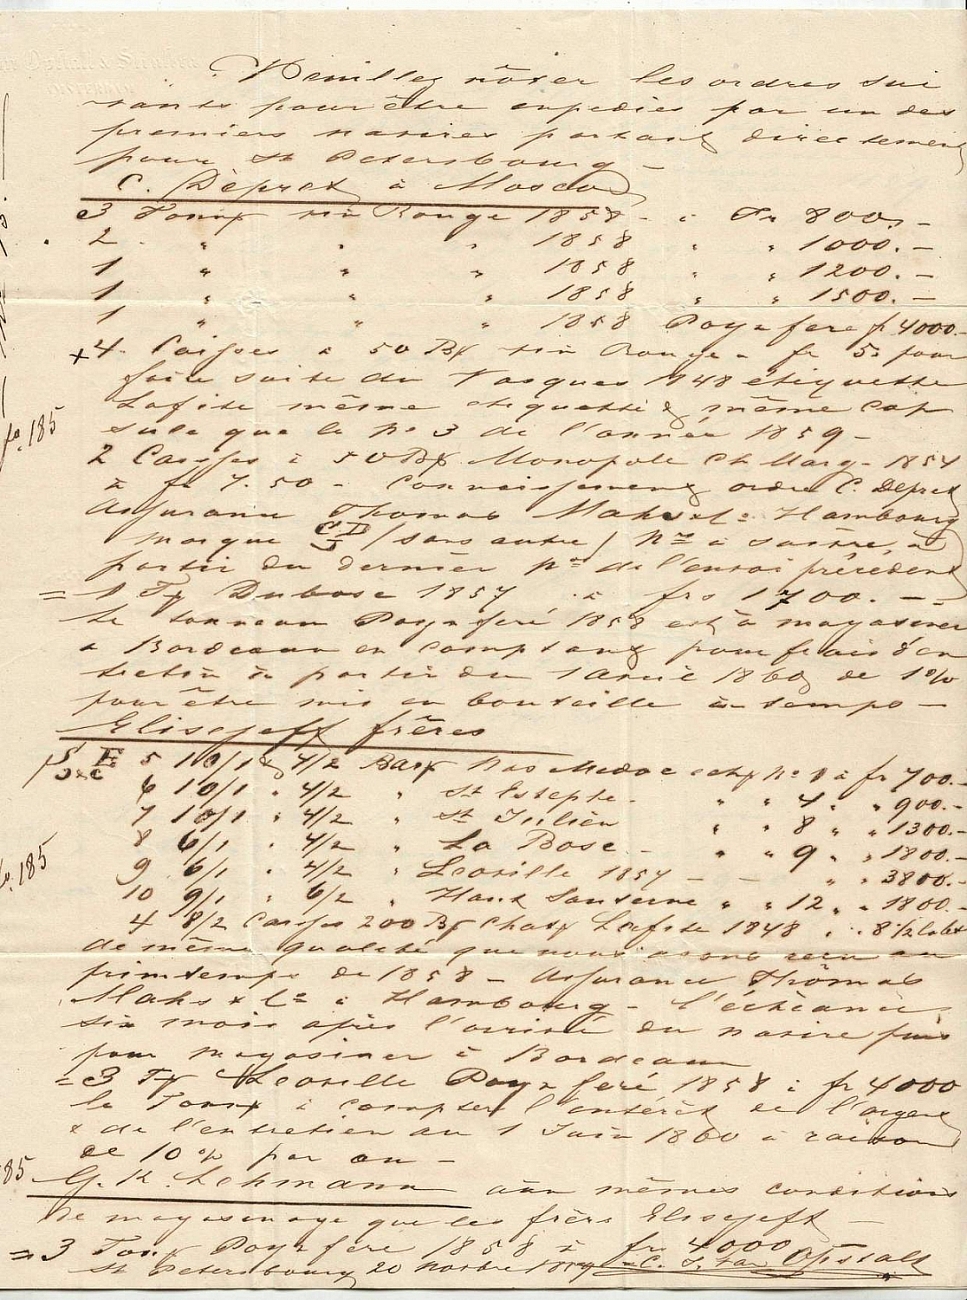 Veuillez nôter les ordres sui
vants pour être expediés par un des
premiers navires partant directement
pour St Petersbourg —
C. Dèpret à Moscou
3 Tonx vin Rouge 1858 - à Frs 800. —
2 " " " 1858 " " 1000. —
1 " " " 1858 " " 1200. —
1 " " " 1858 " " 1500. —
1 " " " 1858 Poyferé fr 4000.—
x 4. Caisses à 50 Bll vin Rouge à fr 5. pour
faire suite du 1848 étiquette
Lafite même etiquette & même cap
sule que le No 3 de l'année 1859 —
2 Caisses à 50 Bll Monopole Ch Marg. 1854
à fr 7.50 — Connaissement ordre C. Dépret
Assurance Thomas Mahs & Co Hambourg
marque C.D / sans autre / Nos à suivre, à
J
partir du dernier No de l'envoi précédent
= 1 Tx Dubosc 1857 à frs 1700. — =
Le tonneau Poyferé 1858 est à magasiner
à Bordeaux en comptant pour frais d'en
tretien à partir du 1 Avril 1860 de 1%
pour être mis en bouteille en temps —
Elisejeff frères
S. E 5 10/1 & 4/2 Barx Bas Medoc No 1 à fr 700.—
J & C
6 10/1 " 4/2 " St Estephe - " " 4 " " 900.—
7 10/1 " 4/2 " St Julien " " 8 " " 1300.—
8 6/1 " 4/2 " La Rose - " " 9 " " 1800.—
9 6/1 " 4/2 " Leoville 1857 - - " " 3800.—
10 9/1 " 6/2 " Haut Sauterne " " 12 " " 1800.—
4 8/2 Caisses 200 Bll Chatx Lafite 1848 " " 8 1/2
de même qualité que nous avons recu au
printemps de 1858 — Assurance Thômas
Mahs & Co à Hambourg — L'échéance
six mois après l'arrivé du navire puis
pour magasiner à Bordeaux
= 3 Tx Leoville Poyferé 1858 à fr 4000
le Tonx à compter l'intérêt de l'argent
& de l'entretien au 1 Juin 1860 à raison
de 10 % par an —
G. K. Lehmann aux mêmes conditions
de magasinage que les frères Elisejeff —
= 3 Tonx Poyferé 1858 à fr 4000
St Petersbourg 20 Novbre 1859 C. J. van Opstall
fo. 185
fo. 185
185